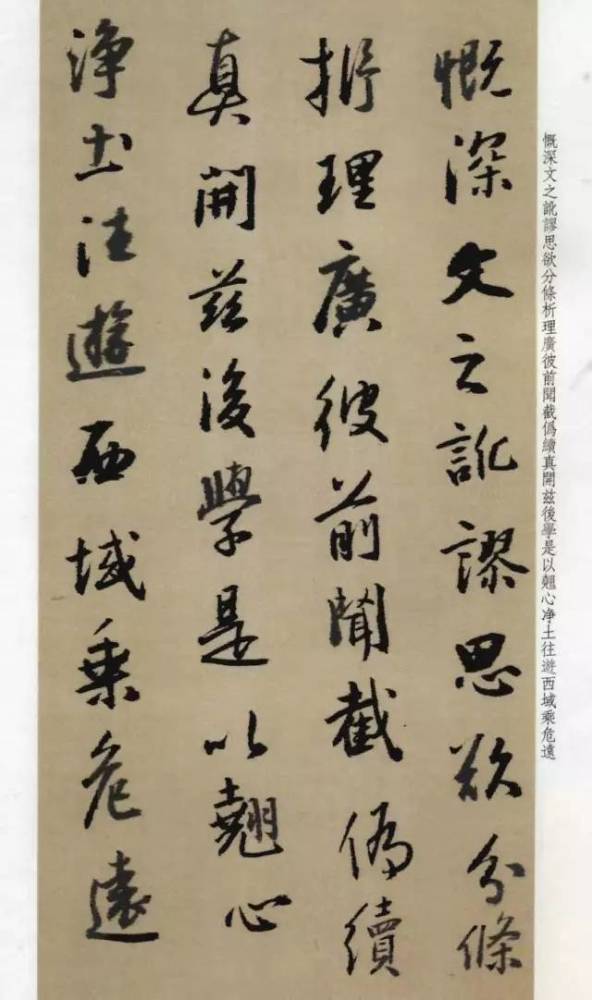 慨深文之訛謬思欲分條
析理廣彼前聞截僞續
真開茲後學是以翹心
淨土往遊西域乘危遠
慨深文之訛謬思欲分條析理廣彼前聞截僞續真開兹後學是以翹心净土往遊西域乘危遠